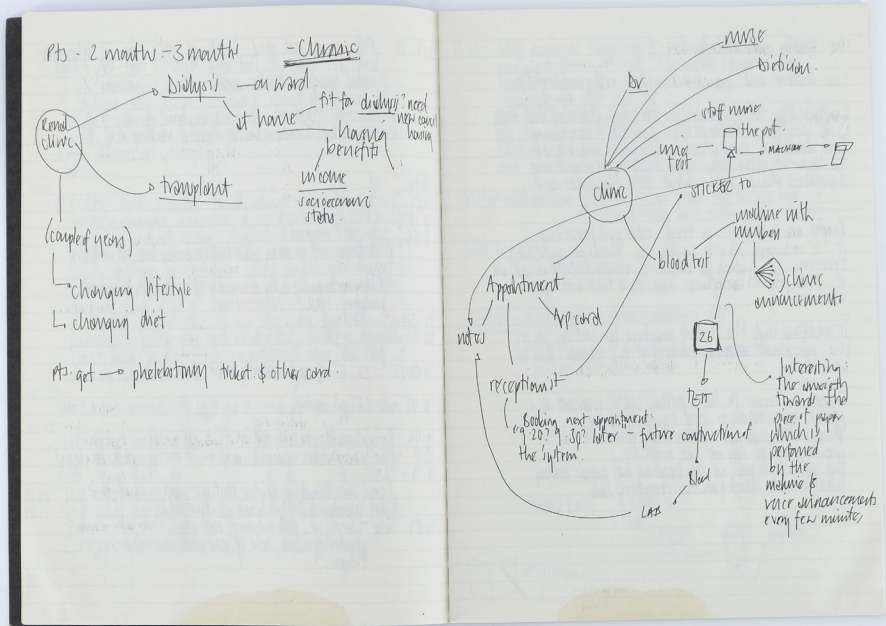 Pts - 2 months - 3 months
- Chronic
Dialysis - on ward
at home
fit for dialysis? need
new council
housing
having
benefits
income
socioeconomic
status.
Renal
clinic
transplant
(couple of years)
changing lifestyle
changing diet
Pts. get → phelebotomy ticket & other card.
nurse
Dietician.
Dr
staff nurse
urine
test
the pot
MACHINE
clinic
STICKER TO
machine with
numbers
blood test
clinic
announcements
Appointment
App card
notes
26
receptionist
TEST
Booking next appointment.
"9.20? 9.30? later" - future construction of
the system.
Interesting:
the anxiety
towards the
piece of paper
which is
performed
by the
machine &
voice announcements
every few minutes
Blood
LABS